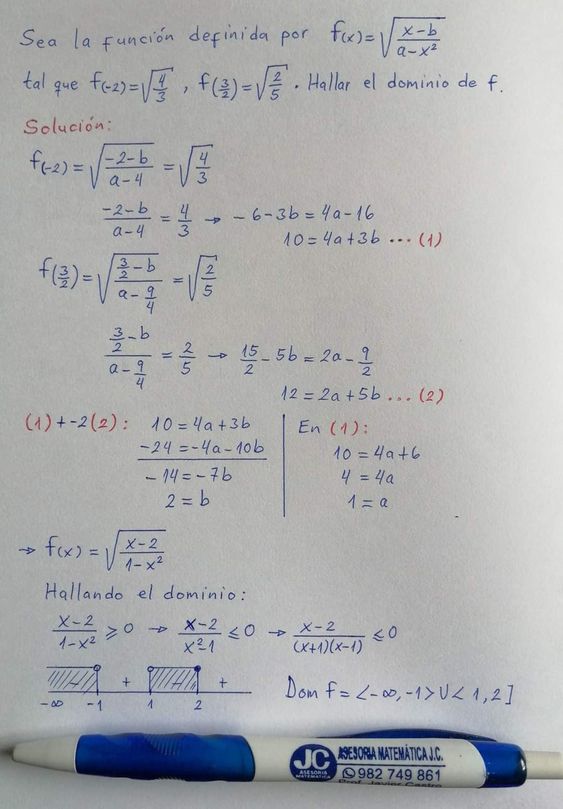 Sea la función definida por f(x)=√((x-b)/(a-x²))
tal que f(-2)=√(4/3), f(3/2)=√(2/5). Hallar el dominio de f.
Solución:
f(-2)=√((-2-b)/(a-4)) = √(4/3)
(-2-b)/(a-4) = 4/3 → -6-3b=4a-16
10=4a+3b ... (1)
f(3/2)=√((3/2-b)/(a-9/4)) = √(2/5)
(3/2-b)/(a-9/4) = 2/5 → 15/2-5b=2a-9/2
12=2a+5b ... (2)
(1)+-2(2): 10=4a+3b
-24=-4a-10b
-14=-7b
2=b
En (1):
10=4a+6
4=4a
1=a
→ f(x)=√((x-2)/(1-x²))
Hallando el dominio:
(x-2)/(1-x²) ≥ 0 → (x-2)/(x²-1) ≤ 0 → (x-2)/((x+1)(x-1)) ≤ 0
+ +
-∞ -1 1 2
Dom f = <-∞,-1> U <1,2]
JC
ASESORIA
MATEMÁTICA
ASESORIA MATEMÁTICA J.C.
982 749 861
Prof. Javier Castro